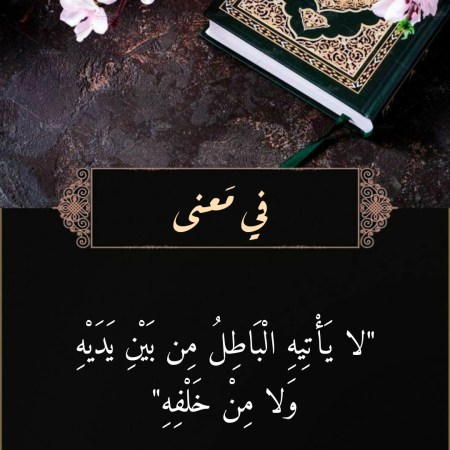 في مَعنى
"لا يَأْتِيهِ الْبَاطِلُ مِن بَيْنِ يَدَيْهِ
وَلا مِنْ خَلْفِهِ"